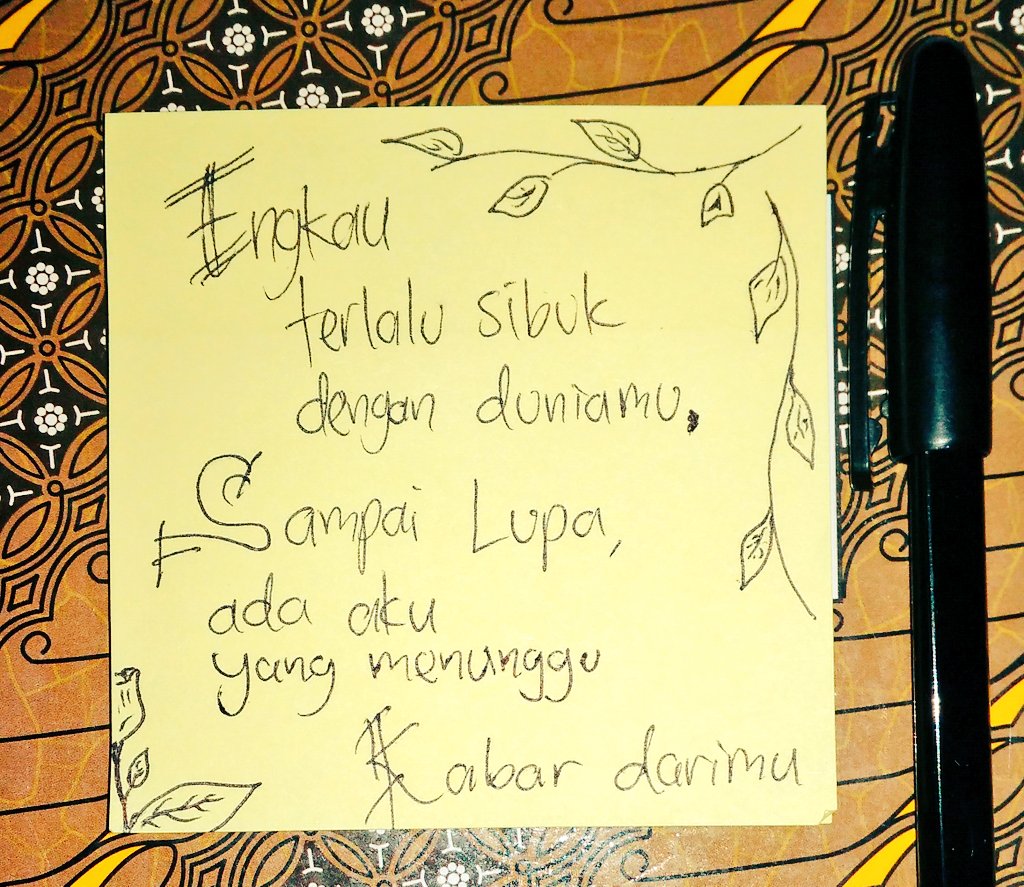 Engkau
terlalu sibuk
dengan duniamu.
Sampai Lupa,
ada aku
yang menunggu
Kabar darimu